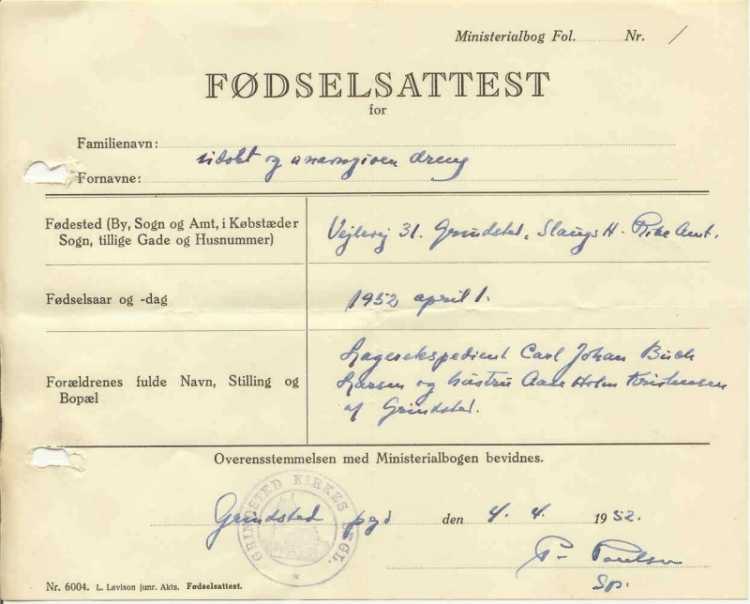 Ministerialbog Fol. Nr. /
FØDSELSATTEST
for
Familienavn:
udøbt og unavngiven dreng
Fornavne:
Fødested (By, Sogn og Amt, i Købstæder
Sogn, tillige Gade og Husnummer)
Vejlevej 31. Grindsted, Slaugs H. Ribe Amt.
Fødselsaar og -dag
1952 april 1.
Forældrenes fulde Navn, Stilling og
Bopæl
Lagerekspedient Carl Johan Buch
Larsen og hustru Aase Holm Kristensen
af Grindsted.
Overensstemmelsen med Ministerialbogen bevidnes.
GRINDSTED KIRKES SEGL.
Grindsted pgd den 4. 4. 1952.
P. Poulsen
Sp.
Nr. 6004. L. Levison junr. Akts. Fødselsattest.